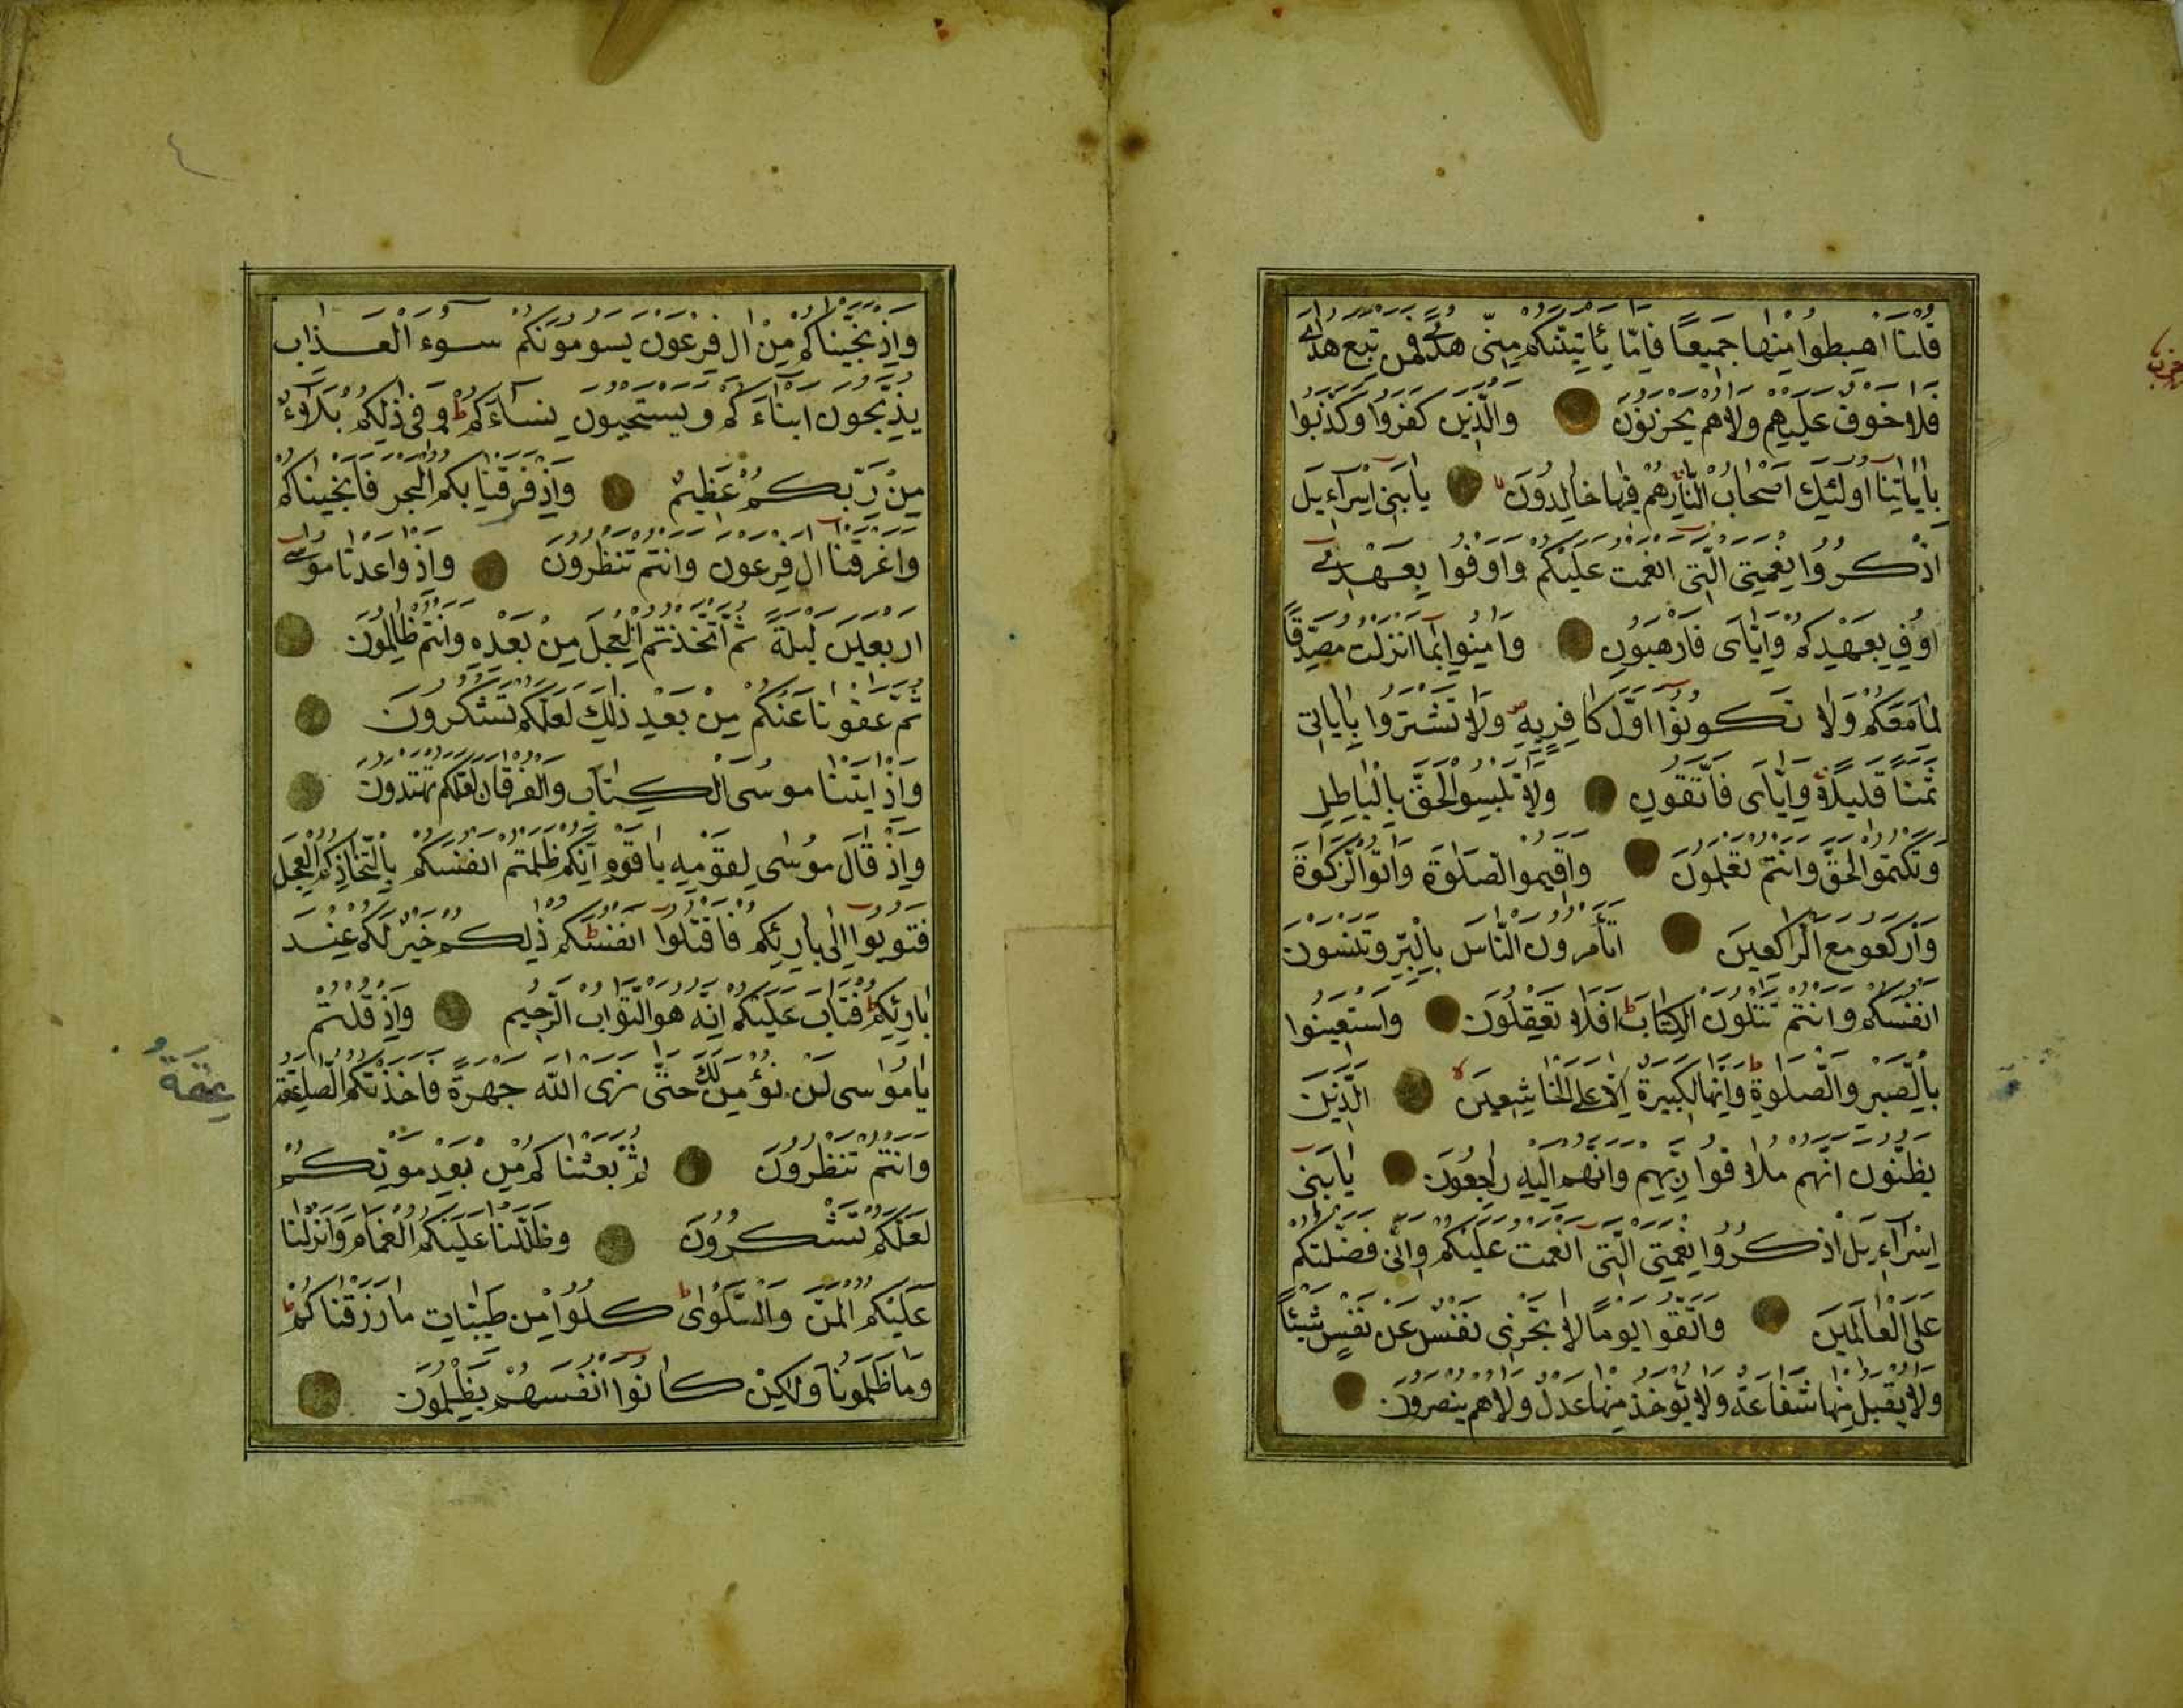 قُلْنَا اهْبِطُوا مِنْهَا جَمِيعًا فَإِمَّا يَأْتِيَنَّكُم مِنِّي هُدًى فَمَن تَبِعَ هُدَايَ
فَلَا خَوْفٌ عَلَيْهِمْ وَلَا هُمْ يَحْزَنُونَ وَالَّذِينَ كَفَرُوا وَكَذَّبُوا
بِآيَاتِنَا أُولَئِكَ أَصْحَابُ النَّارِ هُمْ فِيهَا خَالِدُونَ يَا بَنِي إِسْرَاءِيلَ
اذْكُرُوا نِعْمَتِيَ الَّتِي أَنْعَمْتُ عَلَيْكُمْ وَأَوْفُوا بِعَهْدِي
أُوفِ بِعَهْدِكُمْ وَإِيَّايَ فَارْهَبُونِ وَآمِنُوا بِمَا أَنْزَلْتُ مُصَدِّقًا
لِمَا مَعَكُمْ وَلَا تَكُونُوا أَوَّلَ كَافِرٍ بِهِ وَلَا تَشْتَرُوا بِآيَاتِي
ثَمَنًا قَلِيلًا وَإِيَّايَ فَاتَّقُونِ وَلَا تَلْبِسُوا الْحَقَّ بِالْبَاطِلِ
وَتَكْتُمُوا الْحَقَّ وَأَنْتُمْ تَعْلَمُونَ وَأَقِيمُوا الصَّلَوٰةَ وَآتُوا الزَّكَوٰةَ
وَارْكَعُوا مَعَ الرَّاكِعِينَ أَتَأْمُرُونَ النَّاسَ بِالْبِرِّ وَتَنْسَوْنَ
أَنْفُسَكُمْ وَأَنْتُمْ تَتْلُونَ الْكِتَابَ ط أَفَلَا تَعْقِلُونَ وَاسْتَعِينُوا
بِالصَّبْرِ وَالصَّلَوٰةِ ط وَإِنَّهَا لَكَبِيرَةٌ إِلَّا عَلَى الْخَاشِعِينَ لا الَّذِينَ
يَظُنُّونَ أَنَّهُمْ مُلَاقُوا رَبِّهِمْ وَأَنَّهُمْ إِلَيْهِ رَاجِعُونَ يَا بَنِي
إِسْرَاءِيلَ اذْكُرُوا نِعْمَتِيَ الَّتِي أَنْعَمْتُ عَلَيْكُمْ وَأَنِّي فَضَّلْتُكُمْ
عَلَى الْعَالَمِينَ وَاتَّقُوا يَوْمًا لَا تَجْزِي نَفْسٌ عَنْ نَفْسٍ شَيْئًا
وَلَا يُقْبَلُ مِنْهَا شَفَاعَةٌ وَلَا يُؤْخَذُ مِنْهَا عَدْلٌ وَلَا هُمْ يُنْصَرُونَ
وَإِذْ نَجَّيْنَاكُمْ مِنْ آلِ فِرْعَوْنَ يَسُومُونَكُمْ سُوءَ الْعَذَابِ
يُذَبِّحُونَ أَبْنَاءَكُمْ وَيَسْتَحْيُونَ نِسَاءَكُمْ ط وَفِي ذَلِكُمْ بَلَاءٌ
مِنْ رَبِّكُمْ عَظِيمٌ وَإِذْ فَرَقْنَا بِكُمُ الْبَحْرَ فَأَنْجَيْنَاكُمْ
وَأَغْرَقْنَا آلَ فِرْعَوْنَ وَأَنْتُمْ تَنْظُرُونَ وَإِذْ وَاعَدْنَا مُوسَى
أَرْبَعِينَ لَيْلَةً ثُمَّ اتَّخَذْتُمُ الْعِجْلَ مِنْ بَعْدِهِ وَأَنْتُمْ ظَالِمُونَ
ثُمَّ عَفَوْنَا عَنْكُمْ مِنْ بَعْدِ ذَلِكَ لَعَلَّكُمْ تَشْكُرُونَ
وَإِذْ آتَيْنَا مُوسَى الْكِتَابَ وَالْفُرْقَانَ لَعَلَّكُمْ تَهْتَدُونَ
وَإِذْ قَالَ مُوسَى لِقَوْمِهِ يَا قَوْمِ إِنَّكُمْ ظَلَمْتُمْ أَنْفُسَكُمْ بِاتِّخَاذِكُمُ الْعِجْلَ
فَتُوبُوا إِلَى بَارِئِكُمْ فَاقْتُلُوا أَنْفُسَكُمْ ط ذَلِكُمْ خَيْرٌ لَكُمْ عِنْدَ
بَارِئِكُمْ ط فَتَابَ عَلَيْكُمْ إِنَّهُ هُوَ التَّوَّابُ الرَّحِيمُ وَإِذْ قُلْتُمْ
يَا مُوسَى لَنْ نُؤْمِنَ لَكَ حَتَّى نَرَى اللَّهَ جَهْرَةً فَأَخَذَتْكُمُ الصَّاعِقَةُ
وَأَنْتُمْ تَنْظُرُونَ ثُمَّ بَعَثْنَاكُمْ مِنْ بَعْدِ مَوْتِكُمْ
لَعَلَّكُمْ تَشْكُرُونَ وَظَلَّلْنَا عَلَيْكُمُ الْغَمَامَ وَأَنْزَلْنَا
عَلَيْكُمُ الْمَنَّ وَالسَّلْوَى ط كُلُوا مِنْ طَيِّبَاتِ مَا رَزَقْنَاكُمْ ط
وَمَا ظَلَمُونَا وَلَكِنْ كَانُوا أَنْفُسَهُمْ يَظْلِمُونَ
عِقَةُ
٤